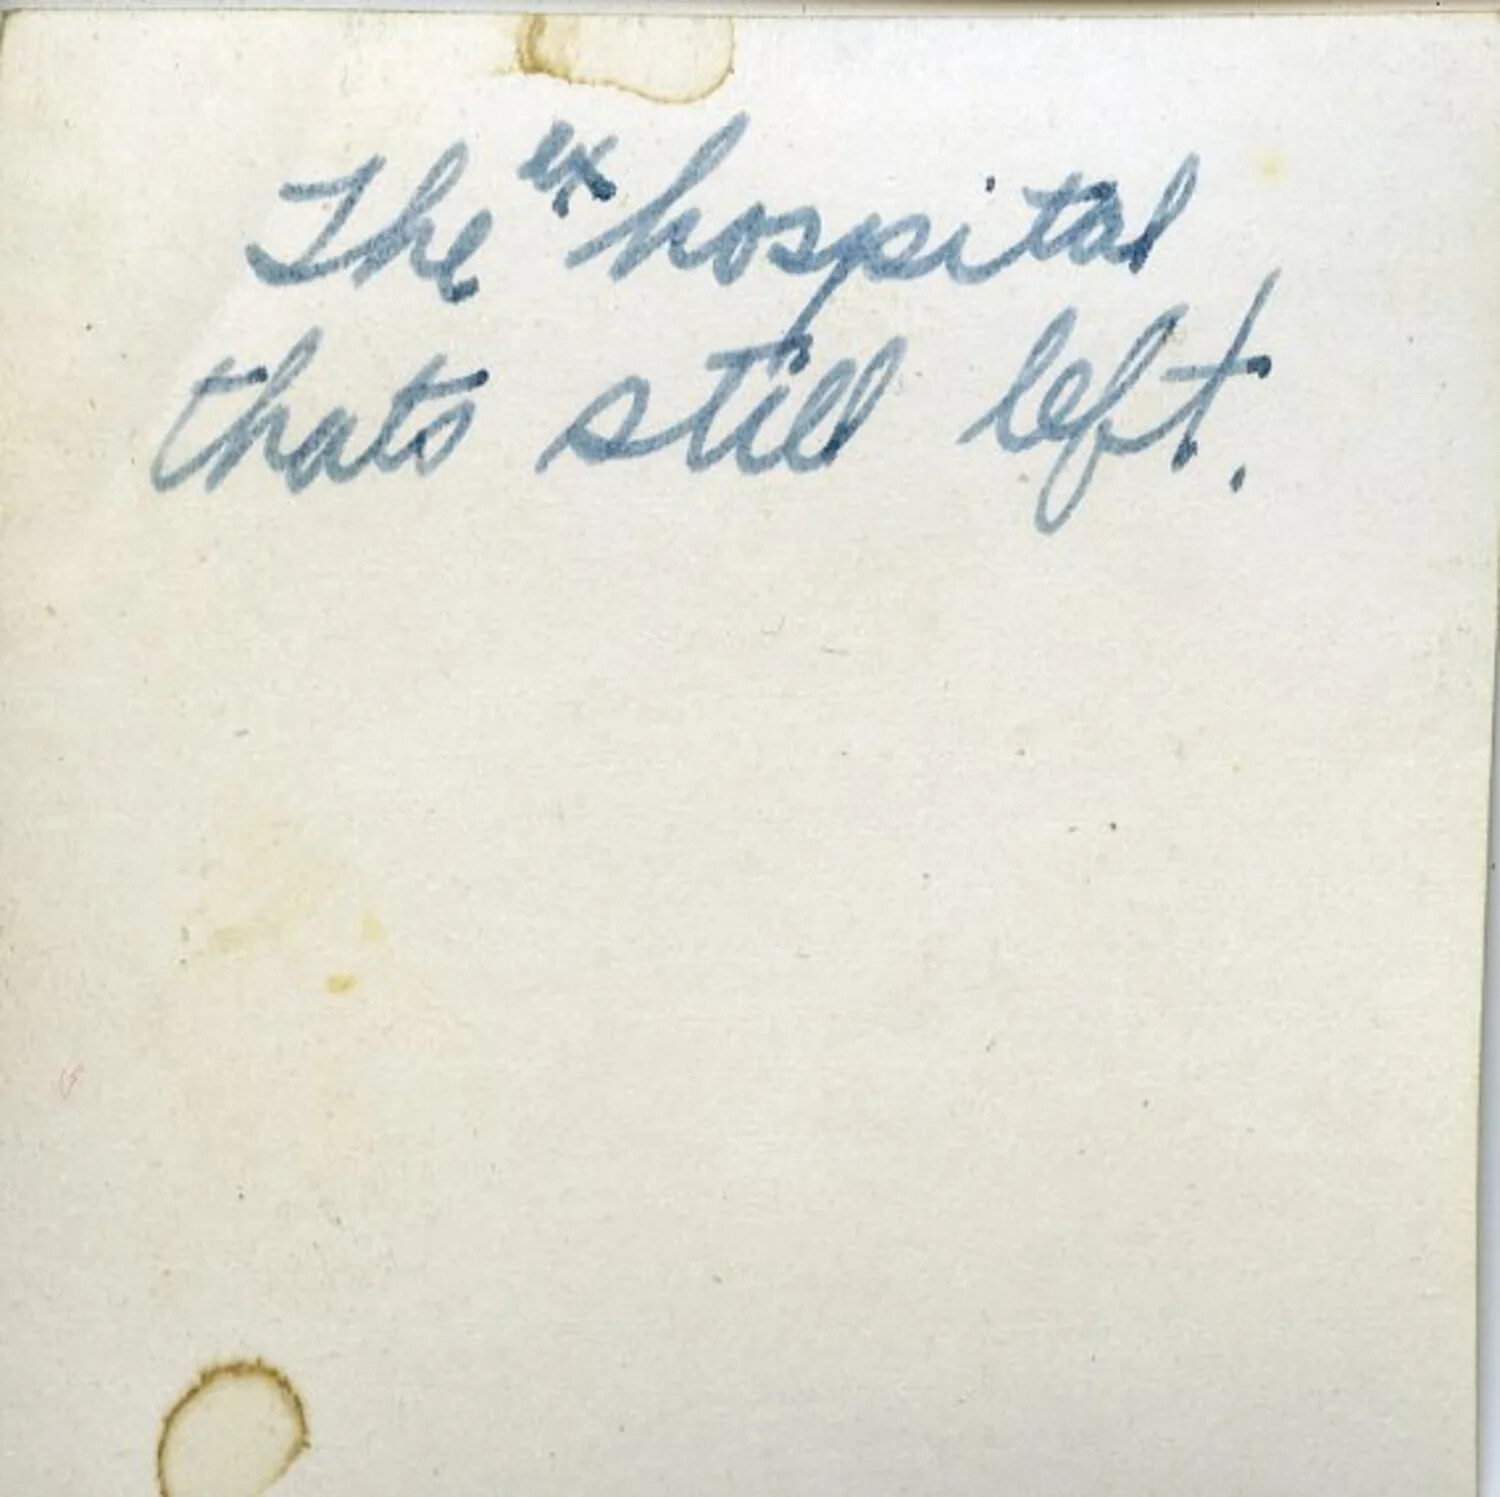 The ex hospital
thats still left.